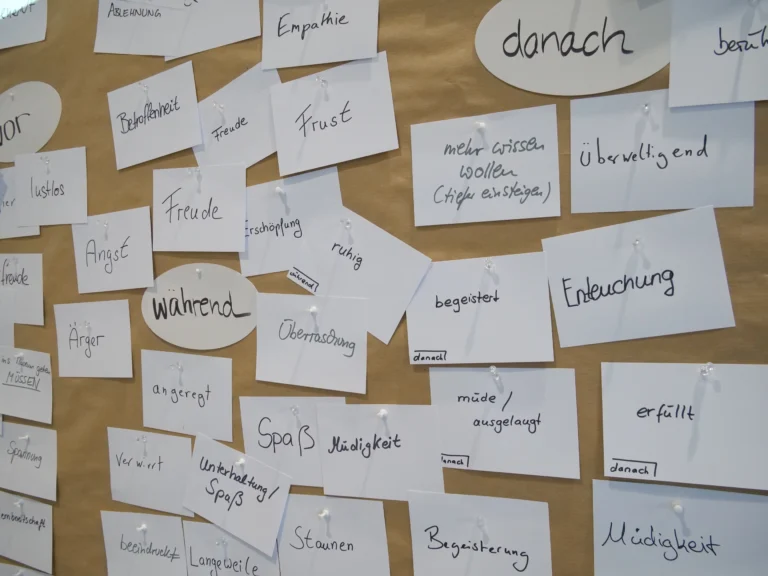 ABLEHNUNG
Empathie
danach
berüh
vor
Betroffenheit
Freude
Frust
mehr wissen
wollen
(tiefer einsteigen)
Überweltigend
lustlos
Angst
Freude
Erschöpfung
ruhig
während
Enteuchung
freude
Ärger
während
Überraschung
begeistert
danach
MÜSSEN
angeregt
Spaß
Müdigkeit
müde /
ausgelaugt
danach
erfüllt
danach
Spannung
Verwirrt
Unterhaltung/
Spaß
beeindruckt
Langeweile
Staunen
Begeisterung
Müdigkeit